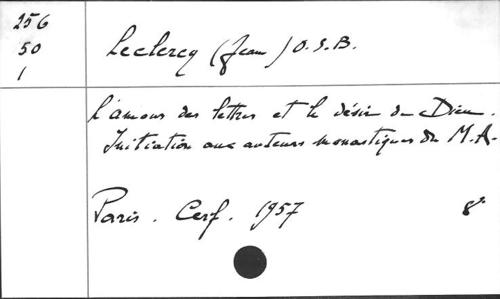 256
50
1
Leclercq (Jean) O.S.B.
L'amour des lettres et le désir de Dieu.
Initiation aux auteurs monastiques du M.A.
Paris. Cerf. 1957 8°